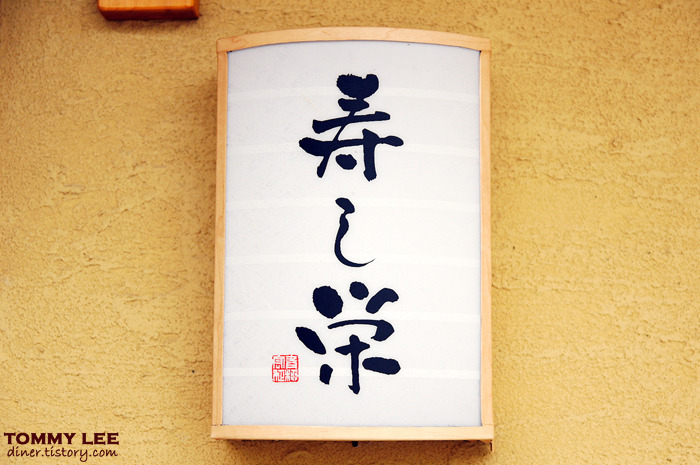 寿し栄
TOMMY LEE
diner.tistory.com